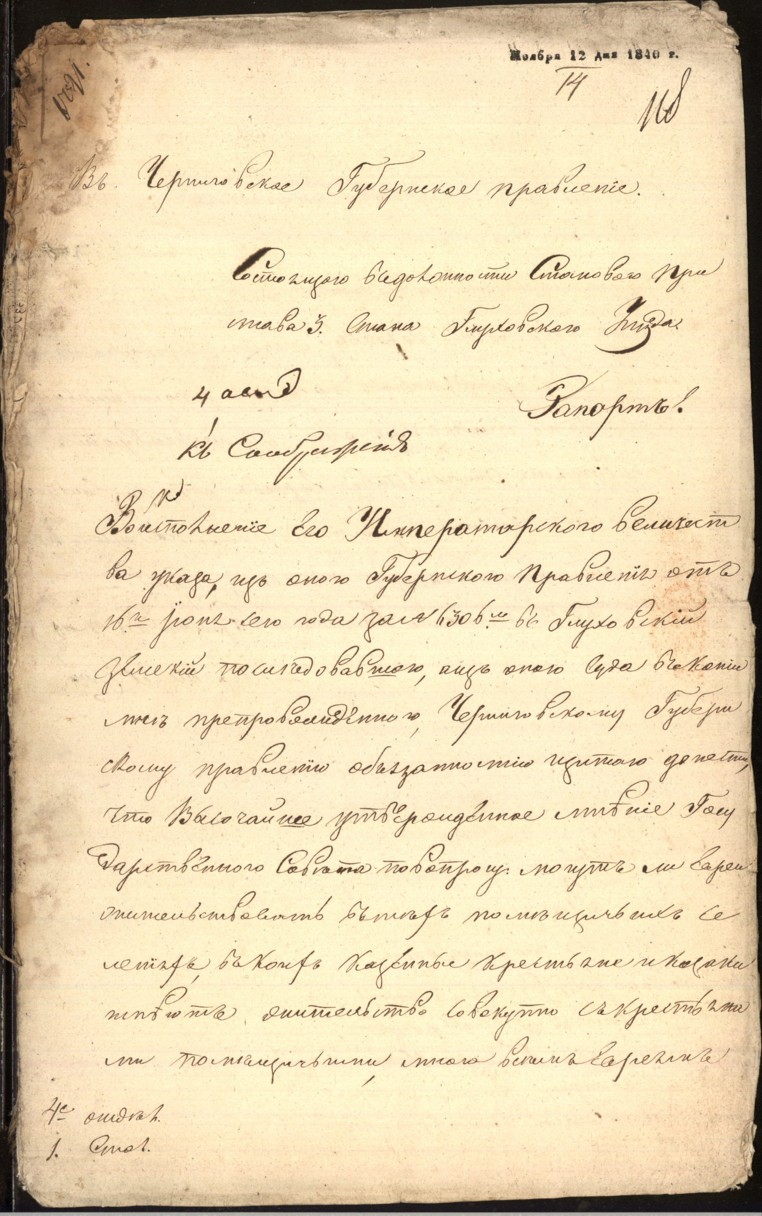 Ноября 12 дня 1840 г.
14
168
1891.
Въ Черниговское Губернское правленіе.
Состоящаго въ должности Становаго при
става 3. Стана Глуховского Уезда
Рапортъ.
4 
къ Соображенію
Во исполненіе Его Императорского величест
ва указа, изъ оного Губернского Правленія отъ
16го Іюня сего года за № 6306м въ Глуховскій
земскій последовавшаго, а изъ оного Суда въ копіи
мне препровожденного, Черниговскому Губерн
скому правленію обязанностію щитаю донести,
что Высочайше утвержденное мнѣніе Госу
дарственного Совета по вопросу: могутъ ли Евреи
жительствовать въ техъ помещичьихъ се
леніяхъ, въ коихъ казенные крестьяне и козаки
имѣютъ жительство совокупно съ крестьяна
ми помещичьими, мною всемъ Евреямъ
4е отдел.
1. Стол.